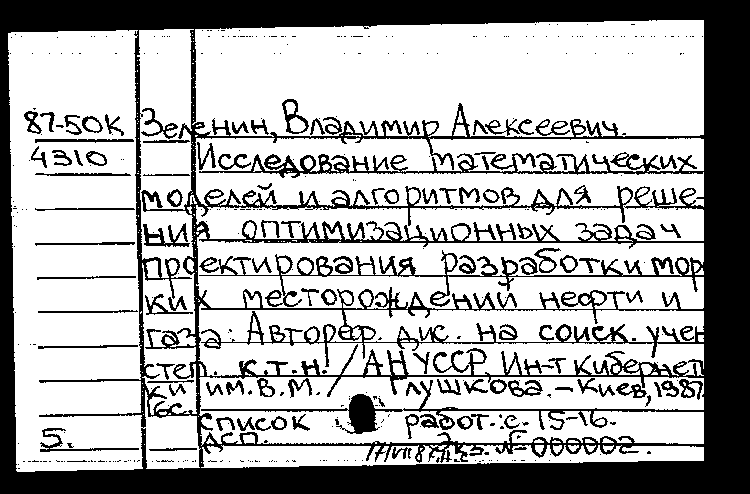 87-50К Зеленин, Владимир Алексеевич.
4310 Исследование математических
моделей и алгоритмов для реше-
ния оптимизационных задач
проектирования разработки мор
ких месторождений нефти и
газа: Автореф. дис. на соиск. учен
степ. к.т.н. / АН УССР, Ин-т кибернет
ки им. В.М. Глушкова. - Киев, 1987.
16с.
список работ.: с. 15-16.
5. дсп. Экз. № 000002.